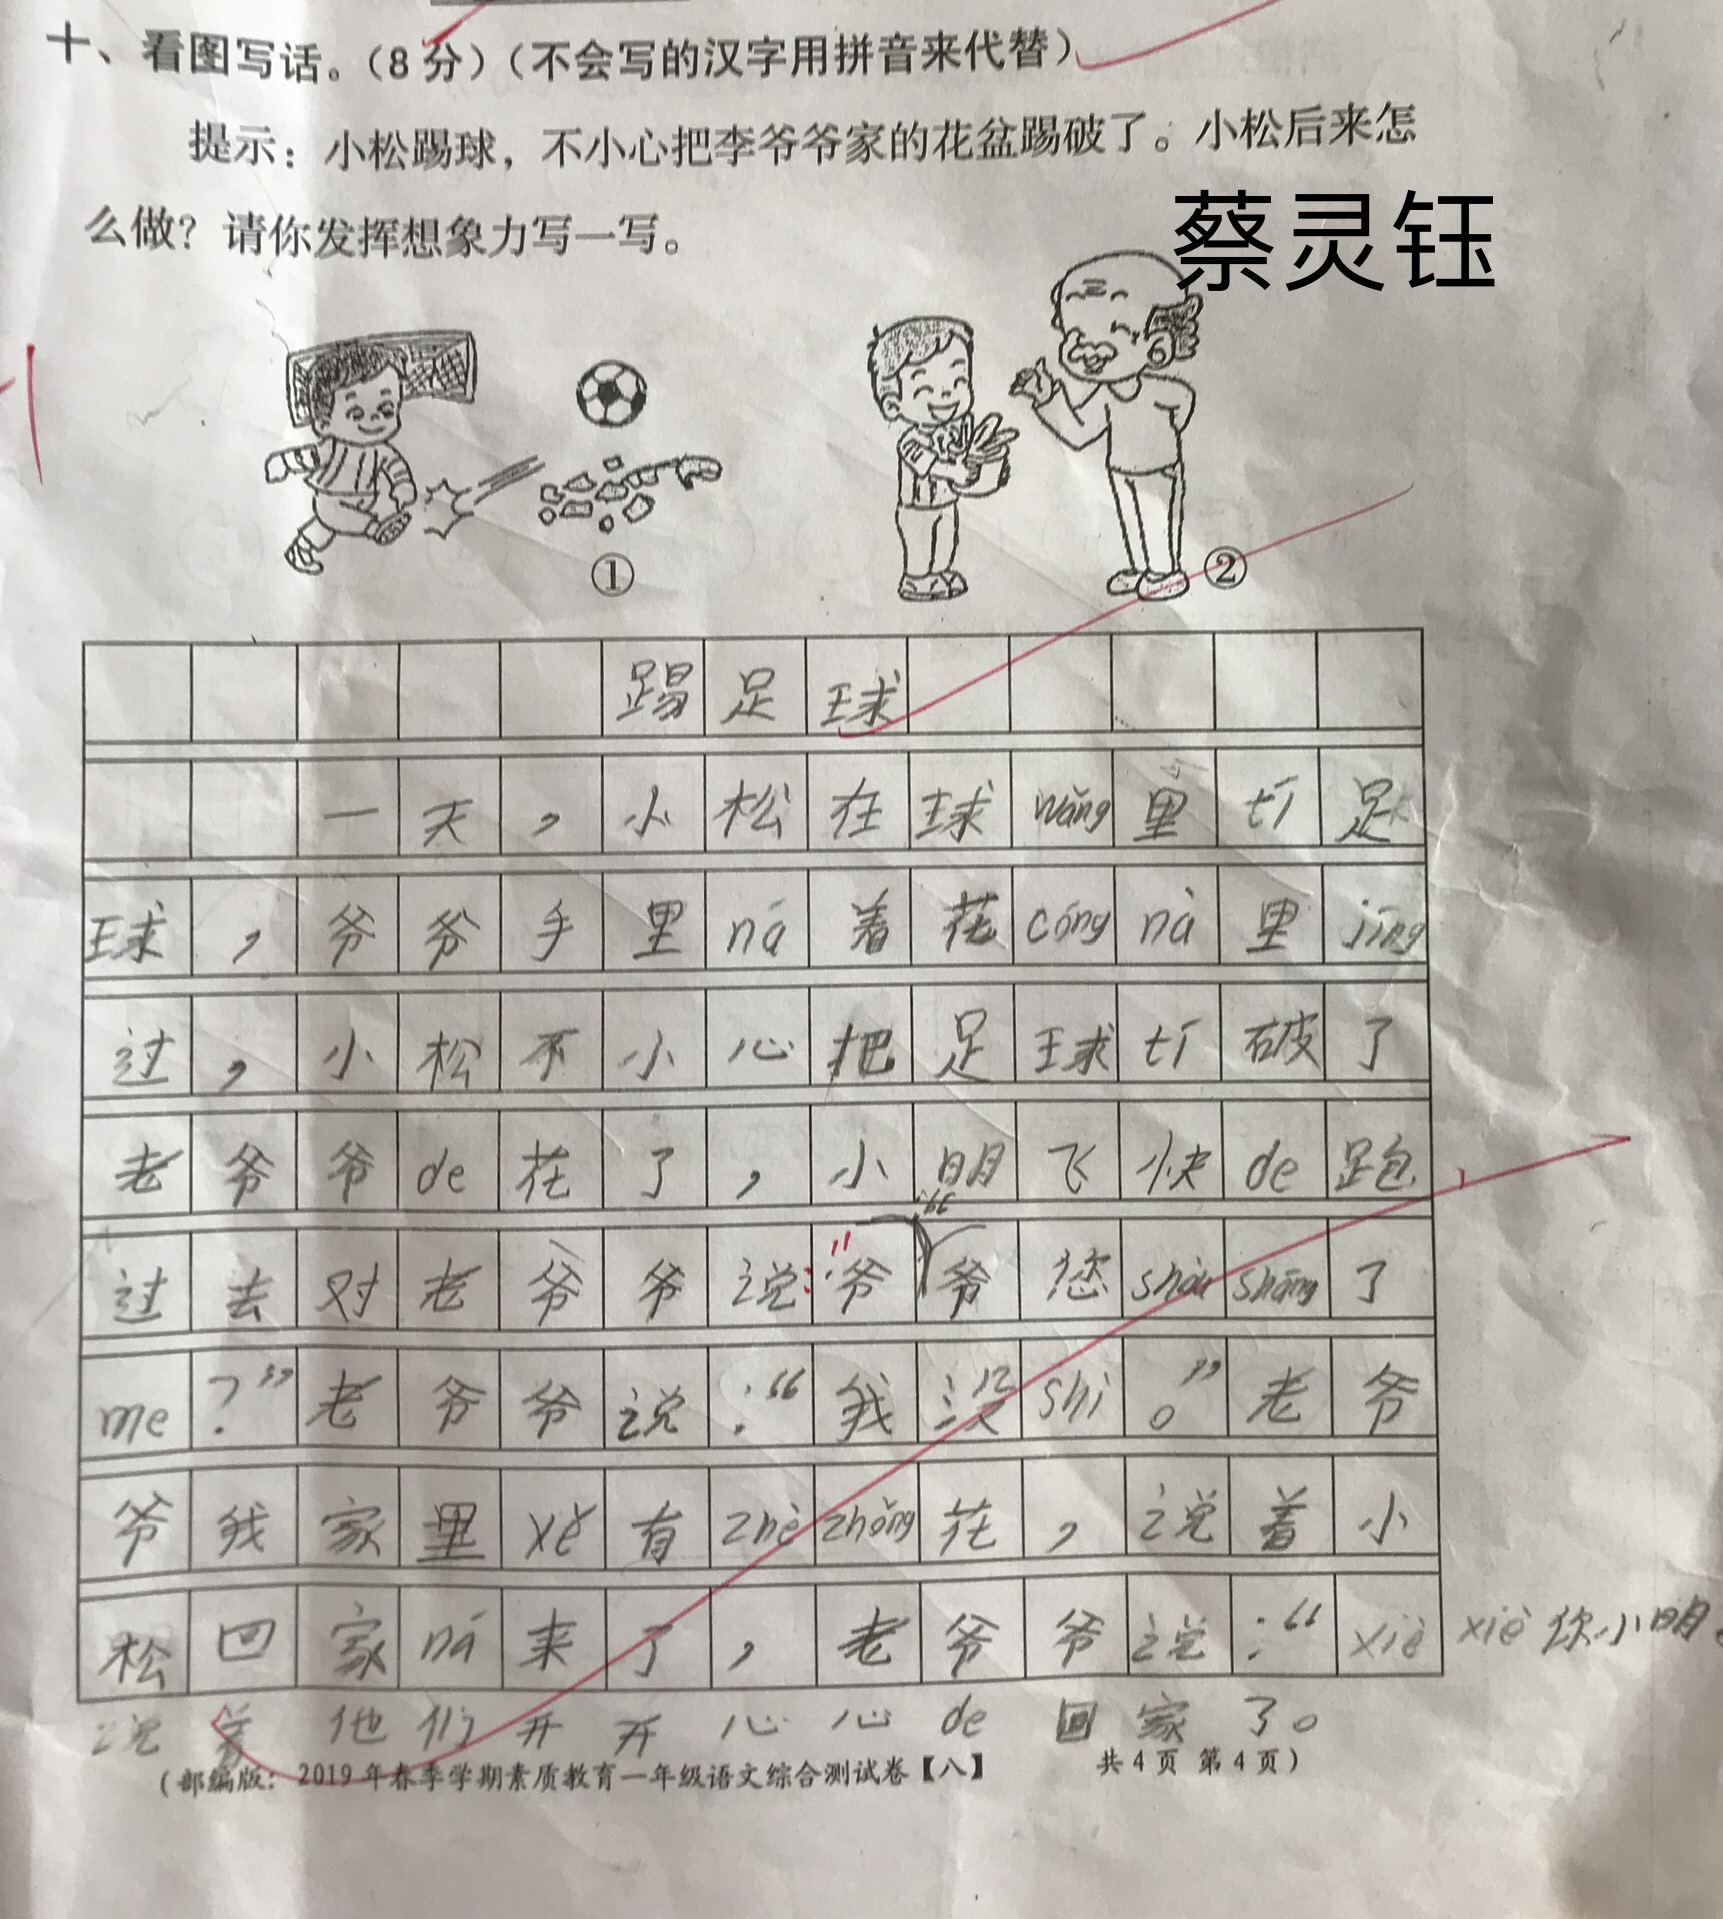 十、看图写话。(8分)(不会写的汉字用拼音来代替)
提示：小松踢球，不小心把李爷爷家的花盆踢破了。小松后来怎
么做？请你发挥想象力写一写。
蔡灵钰
① ②
踢足球
一天，小松在球wǎng里tī足
球，爷爷手里ná着花cóng nà里jīng
过，小松不小心把足球tī破了
老爷爷de花了，小明飞快de跑
过去对老爷爷说："爷爷您shòu shāng了
me？”老爷爷说：“我没shì。”老爷
爷我家里xě有zhè zhǒng花，说着小
松回家ná来了，老爷爷说：“xiè xiè你小明。
说 他们开开心心de回家了。
(部编版：2019年春季学期素质教育一年级语文综合测试卷【八】 共4页 第4页)